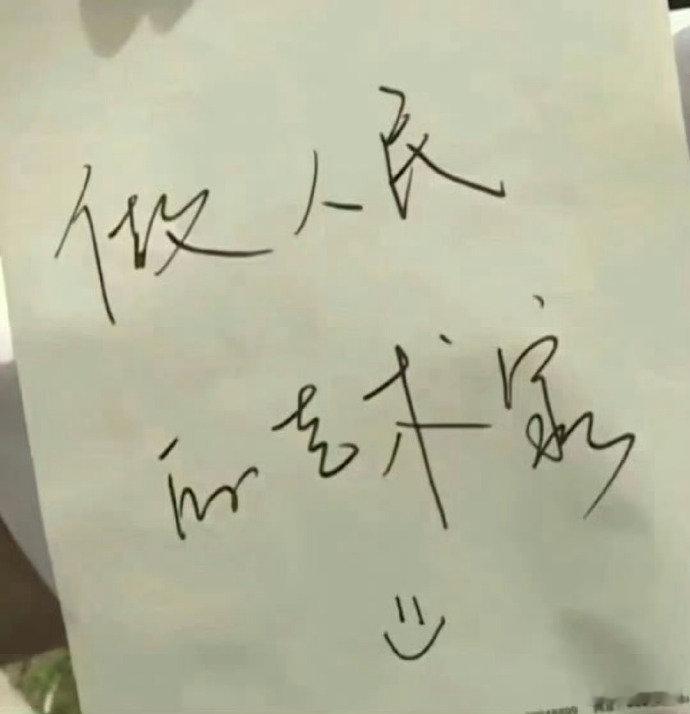 做人民
的艺术家